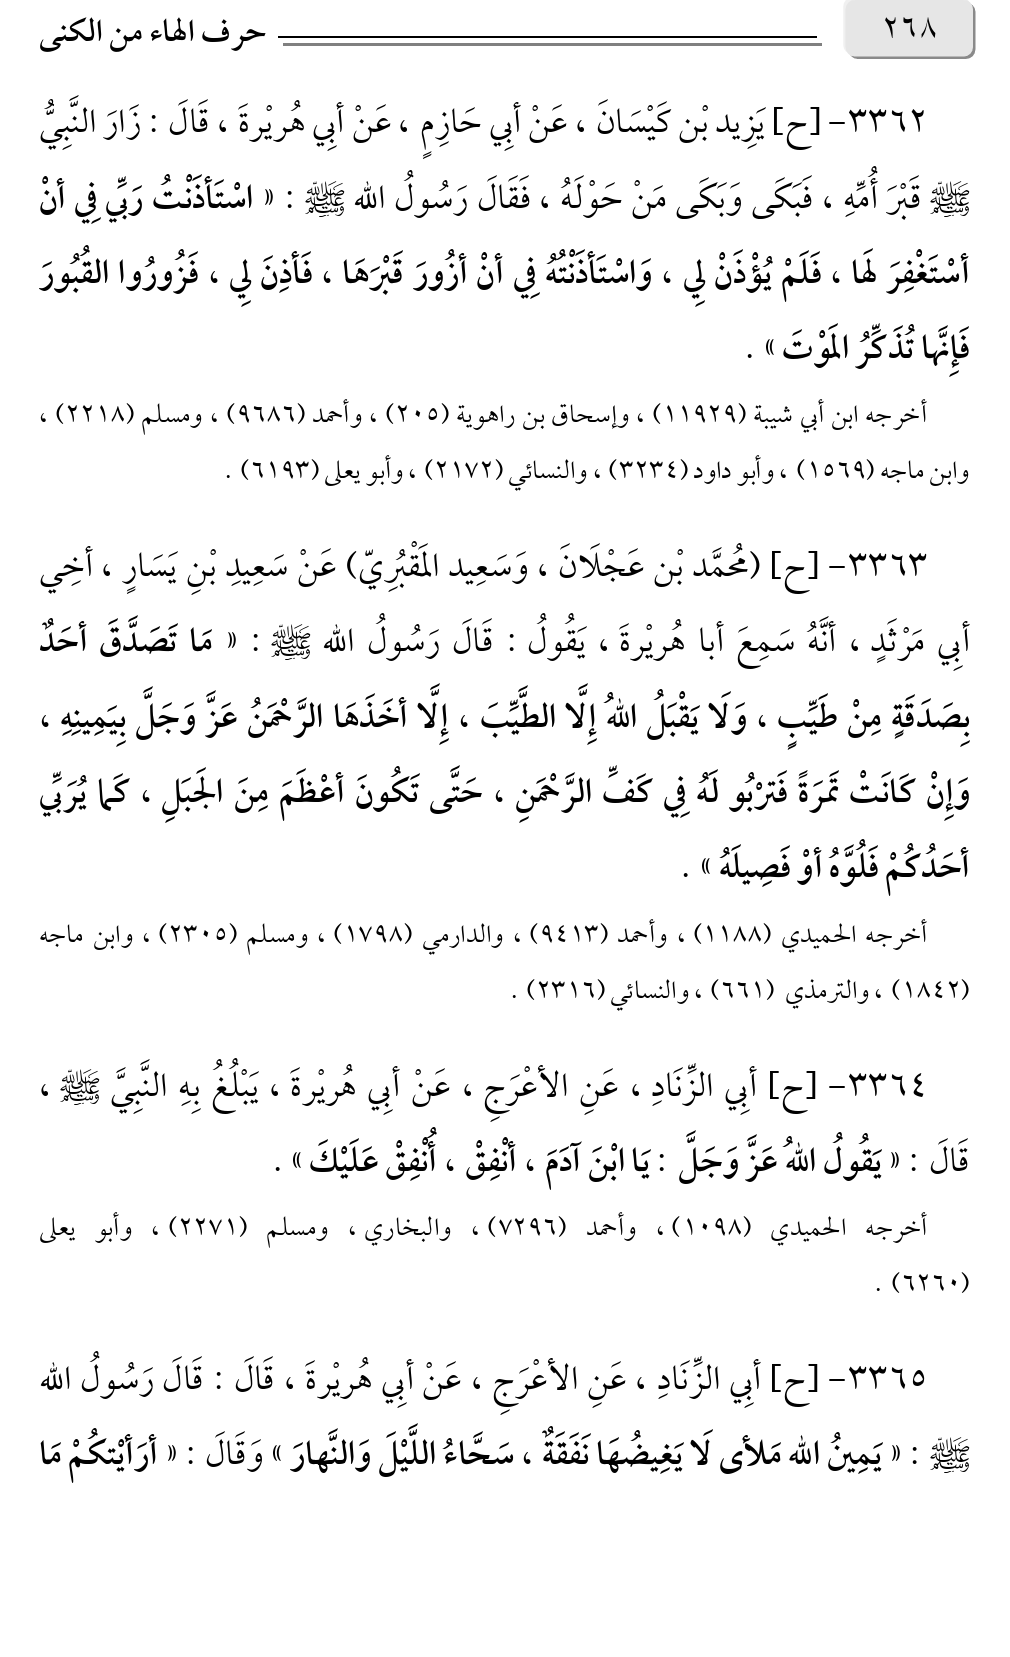 ٢٦٨
حرف الهاء من الكنى
٣٣٦٢- [ح] يَزِيد بْن كَيْسَانَ ، عَنْ أبِي حَازِمٍ ، عَنْ أبِي هُريْرةَ ، قَالَ : زَارَ النَّبِيُّ
ﷺ قَبْرَ أُمِّهِ ، فَبَكَى وَبَكَى مَنْ حَوْلَهُ ، فَقَالَ رَسُولُ الله ﷺ : « اسْتَأذَنْتُ رَبِّي فِي أنْ
أسْتَغْفِرَ لَها ، فَلَمْ يُؤْذَنْ لِي ، وَاسْتَأذَنْتُهُ فِي أنْ أزُورَ قَبْرَهَا ، فَأذِنَ لِي ، فَزُورُوا القُبُورَ
فَإِنَّها تُذَكِّرُ المَوْتَ » .
أخرجه ابن أبي شيبة (١١٩٢٩) ، وإسحاق بن راهوية (٢٠٥) ، وأحمد (٩٦٨٦) ، ومسلم (٢٢١٨) ،
وابن ماجه (١٥٦٩) ، وأبو داود (٣٢٣٤) ، والنسائي (٢١٧٢) ، وأبو يعلى (٦١٩٣) .
٣٣٦٣- [ح] (مُحَمَّد بْن عَجْلَانَ ، وَسَعِيد المَقْبُرِيّ) عَنْ سَعِيدِ بْنِ يَسَارٍ ، أخِي
أبِي مَرْثَدٍ ، أنَّهُ سَمِعَ أبا هُريْرةَ ، يَقُولُ : قَالَ رَسُولُ الله ﷺ : « مَا تَصَدَّقَ أحَدٌ
بِصَدَقَةٍ مِنْ طَيِّبٍ ، وَلَا يَقْبَلُ اللهُ إِلَّا الطَّيِّبَ ، إِلَّا أخَذَهَا الرَّحْمَنُ عَزَّ وَجَلَّ بِيَمِينِهِ ،
وَإِنْ كَانَتْ تَمرَةً فَترْبُو لَهُ فِي كَفِّ الرَّحْمَنِ ، حَتَّى تَكُونَ أعْظَمَ مِنَ الجَبَلِ ، كَما يُرَبِّي
أحَدُكُمْ فَلُوَّهُ أوْ فَصِيلَهُ » .
أخرجه الحميدي (١١٨٨) ، وأحمد (٩٤١٣) ، والدارمي (١٧٩٨) ، ومسلم (٢٣٠٥) ، وابن ماجه
(١٨٤٢) ، والترمذي (٦٦١) ، والنسائي (٢٣١٦) .
٣٣٦٤- [ح] أبِي الزِّنَادِ ، عَنِ الأعْرَجِ ، عَنْ أبِي هُريْرةَ ، يَبْلُغُ بِهِ النَّبِيَّ ﷺ ،
قَالَ : « يَقُولُ اللهُ عَزَّ وَجَلَّ : يَا ابْنَ آدَمَ ، أنْفِقْ ، أُنْفِقْ عَلَيْكَ » .
أخرجه الحميدي (١٠٩٨) ، وأحمد (٧٢٩٦) ، والبخاري ، ومسلم (٢٢٧١) ، وأبو يعلى
(٦٢٦٠) .
٣٣٦٥- [ح] أبِي الزِّنَادِ ، عَنِ الأعْرَجِ ، عَنْ أبِي هُريْرةَ ، قَالَ : قَالَ رَسُولُ الله
ﷺ : « يَمِينُ الله مَلأى لَا يَغِيضُهَا نَفَقَةٌ ، سَحَّاءُ اللَّيْلَ وَالنَّهارَ » وَقَالَ : « أرَأيْتكُمْ مَا